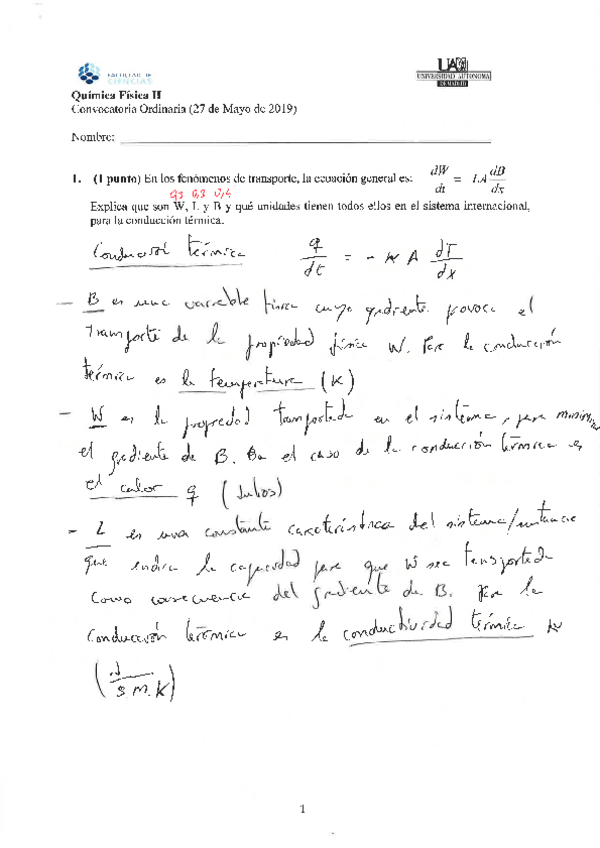 FACULTAD DE
CIENCIAS
UAM
UNIVERSIDAD AUTONOMA
DE MADRID
Química Física II
Convocatoria Ordinaria (27 de Mayo de 2019)
Nombre:
1. (1 punto) En los fenómenos de transporte, la ecuación general es: dW/dt = LA dB/dx
0,3 0,3 0,4
Explica que son W, L y B y qué unidades tienen todos ellos en el sistema internacional,
para la conducción térmica.
Conducción térmica q/dt = - κ A dT/dx
- B es una variable física cuyo gradiente provoca el
transporte de la propiedad física W. Para la conducción
térmica es la temperatura (K)
- W es la propiedad transportada en el sistema, para minimizar
el gradiente de B. En el caso de la conducción térmica es
el calor q (Julios)
- L es una constante característica del sistema/sustancia
que indica la capacidad para que W sea transportada
como consecuencia del gradiente de B. Para la
conducción térmica es la conductividad térmica κ
(J / s m K)
1